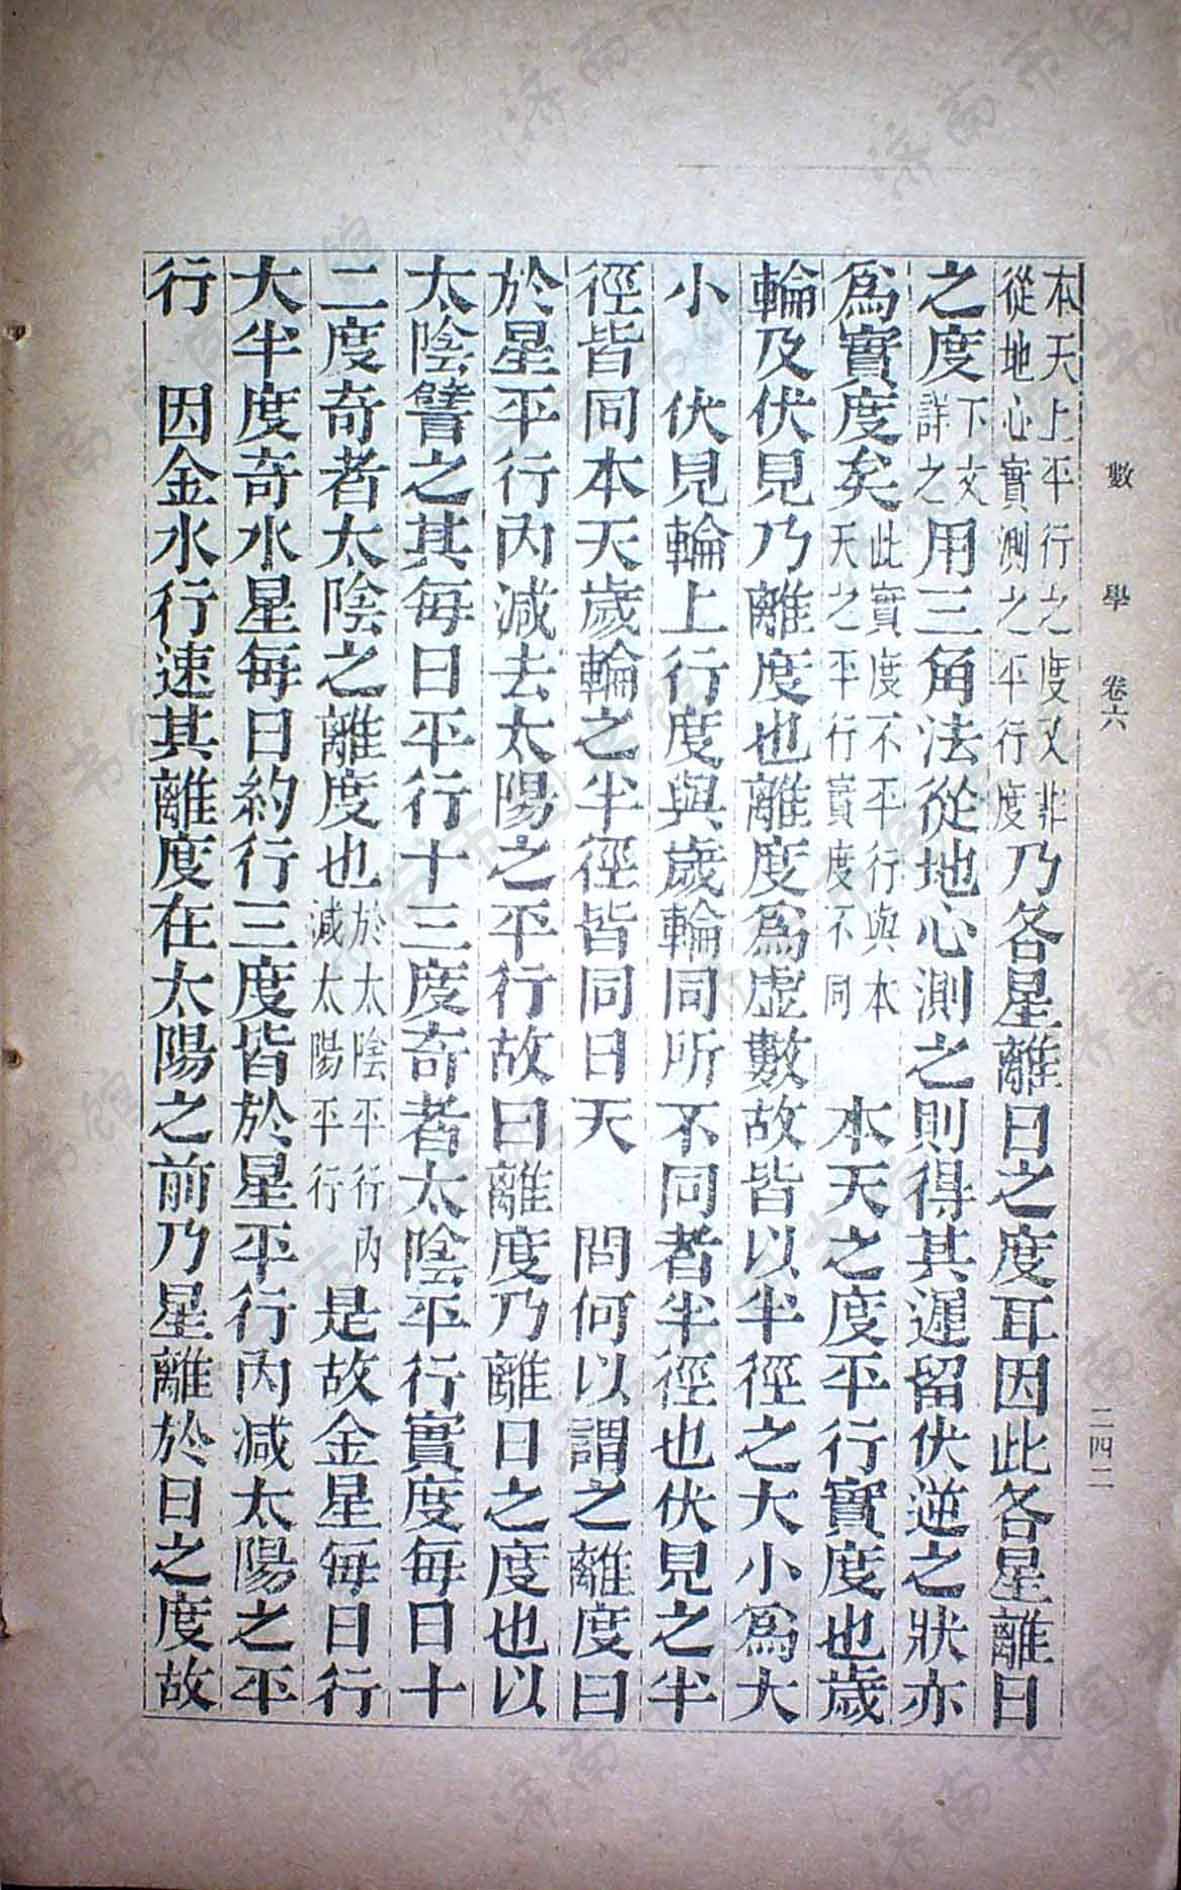 數學 卷六 二四二
本天上平行之度又非從地心實測之平行度乃各星離日之度耳因此各星離日
之度下文詳之用三角法從地心測之則得其遲留伏逆之狀亦
爲實度矣此實度不平行與本天之平行實度不同 本天之度平行實度也歲
輪及伏見乃離度也離度爲虛數故皆以半徑之大小爲大
小 伏見輪上行度與歲輪同所不同者半徑也伏見之半
徑皆同本天歲輪之半徑皆同日天 問何以謂之離度曰
於星平行內減去太陽之平行故曰離度乃離日之度也以
太陰譬之其每日平行十三度奇者太陰平行實度每日十
二度奇者太陰之離度也於太陰平行內減太陽平行是故金星每日行
大半度奇水星每日約行三度皆於星平行內減太陽之平
行 因金水行速其離度在太陽之前乃星離於日之度故